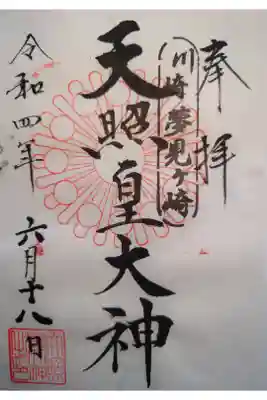 奉拝
(川崎夢見ヶ崎)
天照皇大神
令和四年
六月十八日